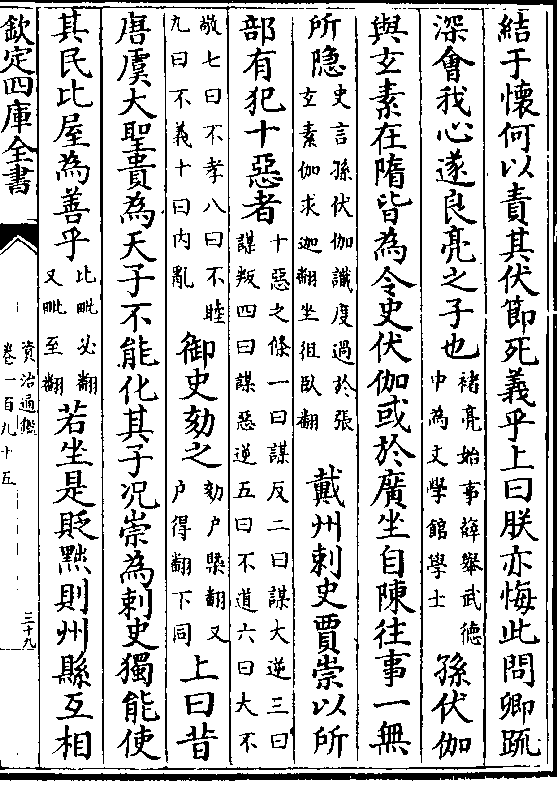 結于懷何以責其伏節死義乎上曰朕亦悔此問卿䟽
深會我心遂良亮之子也褚亮始事薛舉武德中為文學館學士孫伏伽
與玄素在隋皆為令史伏伽或於廣坐自陳往事一無
所隐史言孫伏伽識度過於張玄素伽求迦翻坐徂臥翻戴州刺史賈崇以所
部有犯十惡者十惡之條一曰謀反二曰謀大逆三曰謀叛四曰謀惡逆五曰不道六曰大不
敬七曰不孝八曰不睦九曰不義十曰内亂御史劾之劾户槩翻又户得翻下同上曰昔
唐虞大聖貴為天子不能化其子况崇為刺史獨能使
其民比屋為善乎比毗必翻又毗至翻若坐是貶黜則州縣互相
欽定四庫全書
資治通鑑
卷一百九十五
三十九